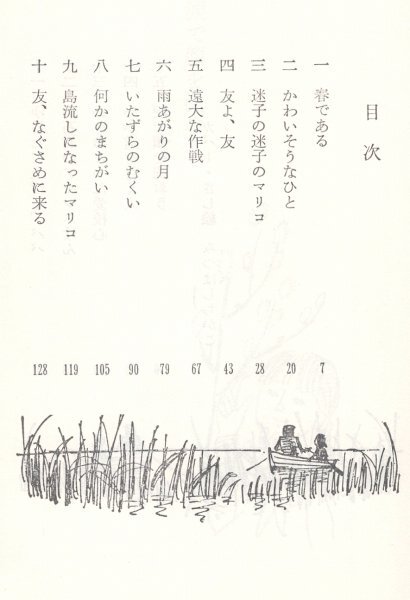 目次
一 春である 7
二 かわいそうなひと 20
三 迷子の迷子のマリコ 28
四 友よ、友 43
五 遠大な作戦 67
六 雨あがりの月 79
七 いたずらのむくい 90
八 何かのまちがい 105
九 島流しになったマリコ 119
十 友、なぐさめに来る 128